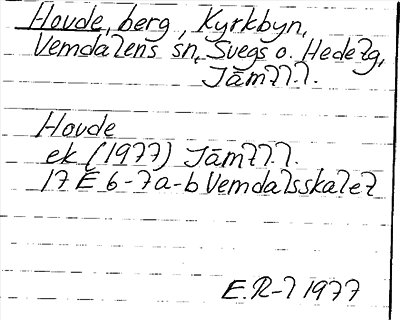 Hovde, berg, Kyrkbyn,
Vemdalens sn, Svegs o. Hede lg,
Jämtl l.
Hovde
ek (1977) Jämtl l.
17 E 6-7 a-b Vemdalsskalet
E.R-l 1977